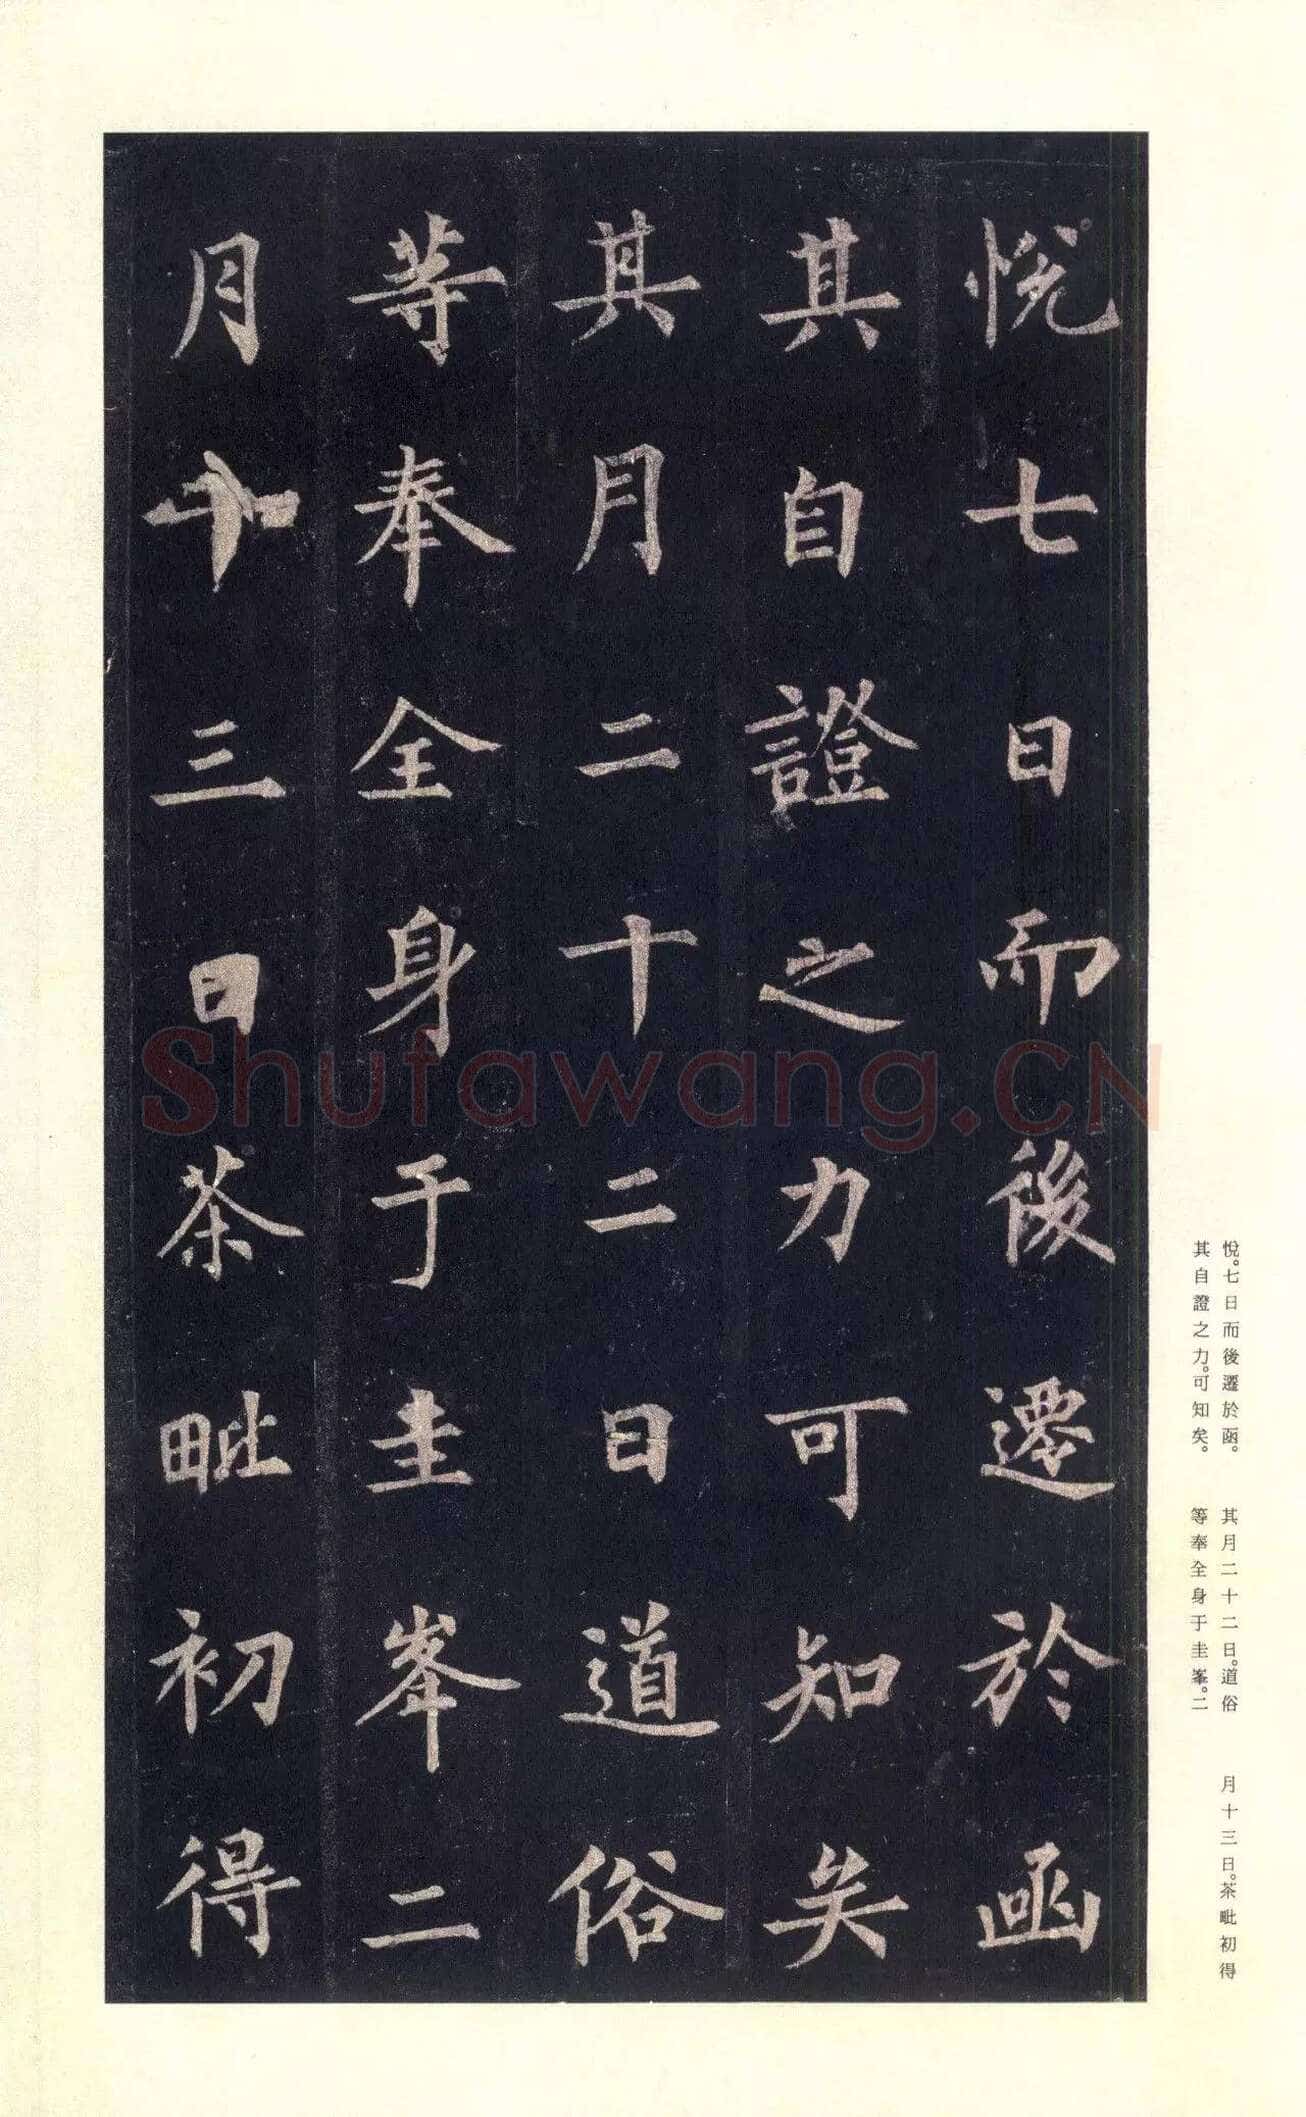 悅七日而後遷於函
其自證之力可知矣
其月二十二日道俗
等奉全身于圭峯二
月十三日茶毗初得
悅。七日而後遷於函。
其自證之力。可知矣。
其月二十二日。道俗
等奉全身于圭峯。二
月十三日。茶毗初得
Shufawang.CN